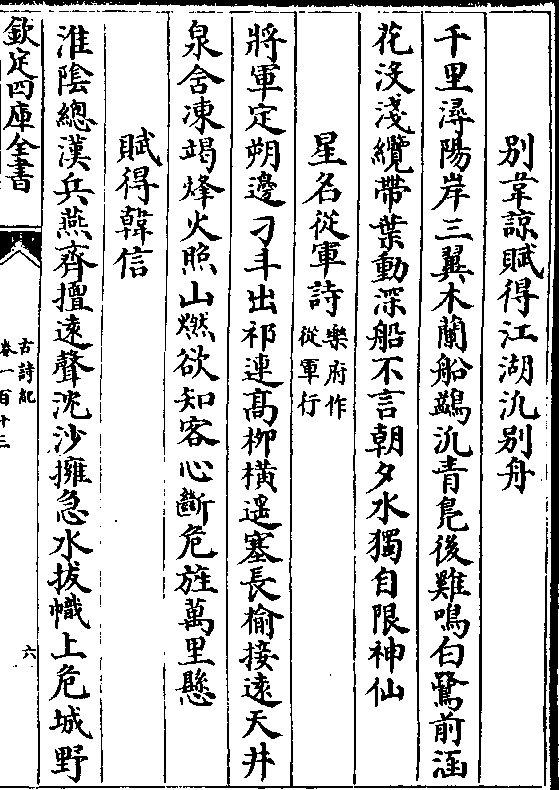 別韋諒賦得江湖汎別舟
千里潯陽岸三翼木蘭船鷁汎青鳧後雞鳴白鷺前
花沒淺纜帶葉動深船不言朝夕水獨自限神仙
星名從軍詩
樂府作
從軍行
將軍定朔邊刁斗出祁連髙柳橫遥塞長榆接遠天井
泉含凍竭烽火照山燃欲知客心斷危旌萬里懸
賦得韓信
淮陰總漢兵燕齊擅遠聲沈沙擁急水拔幟上危城野
欽定四庫全書
古詩紀
卷一百十三
六